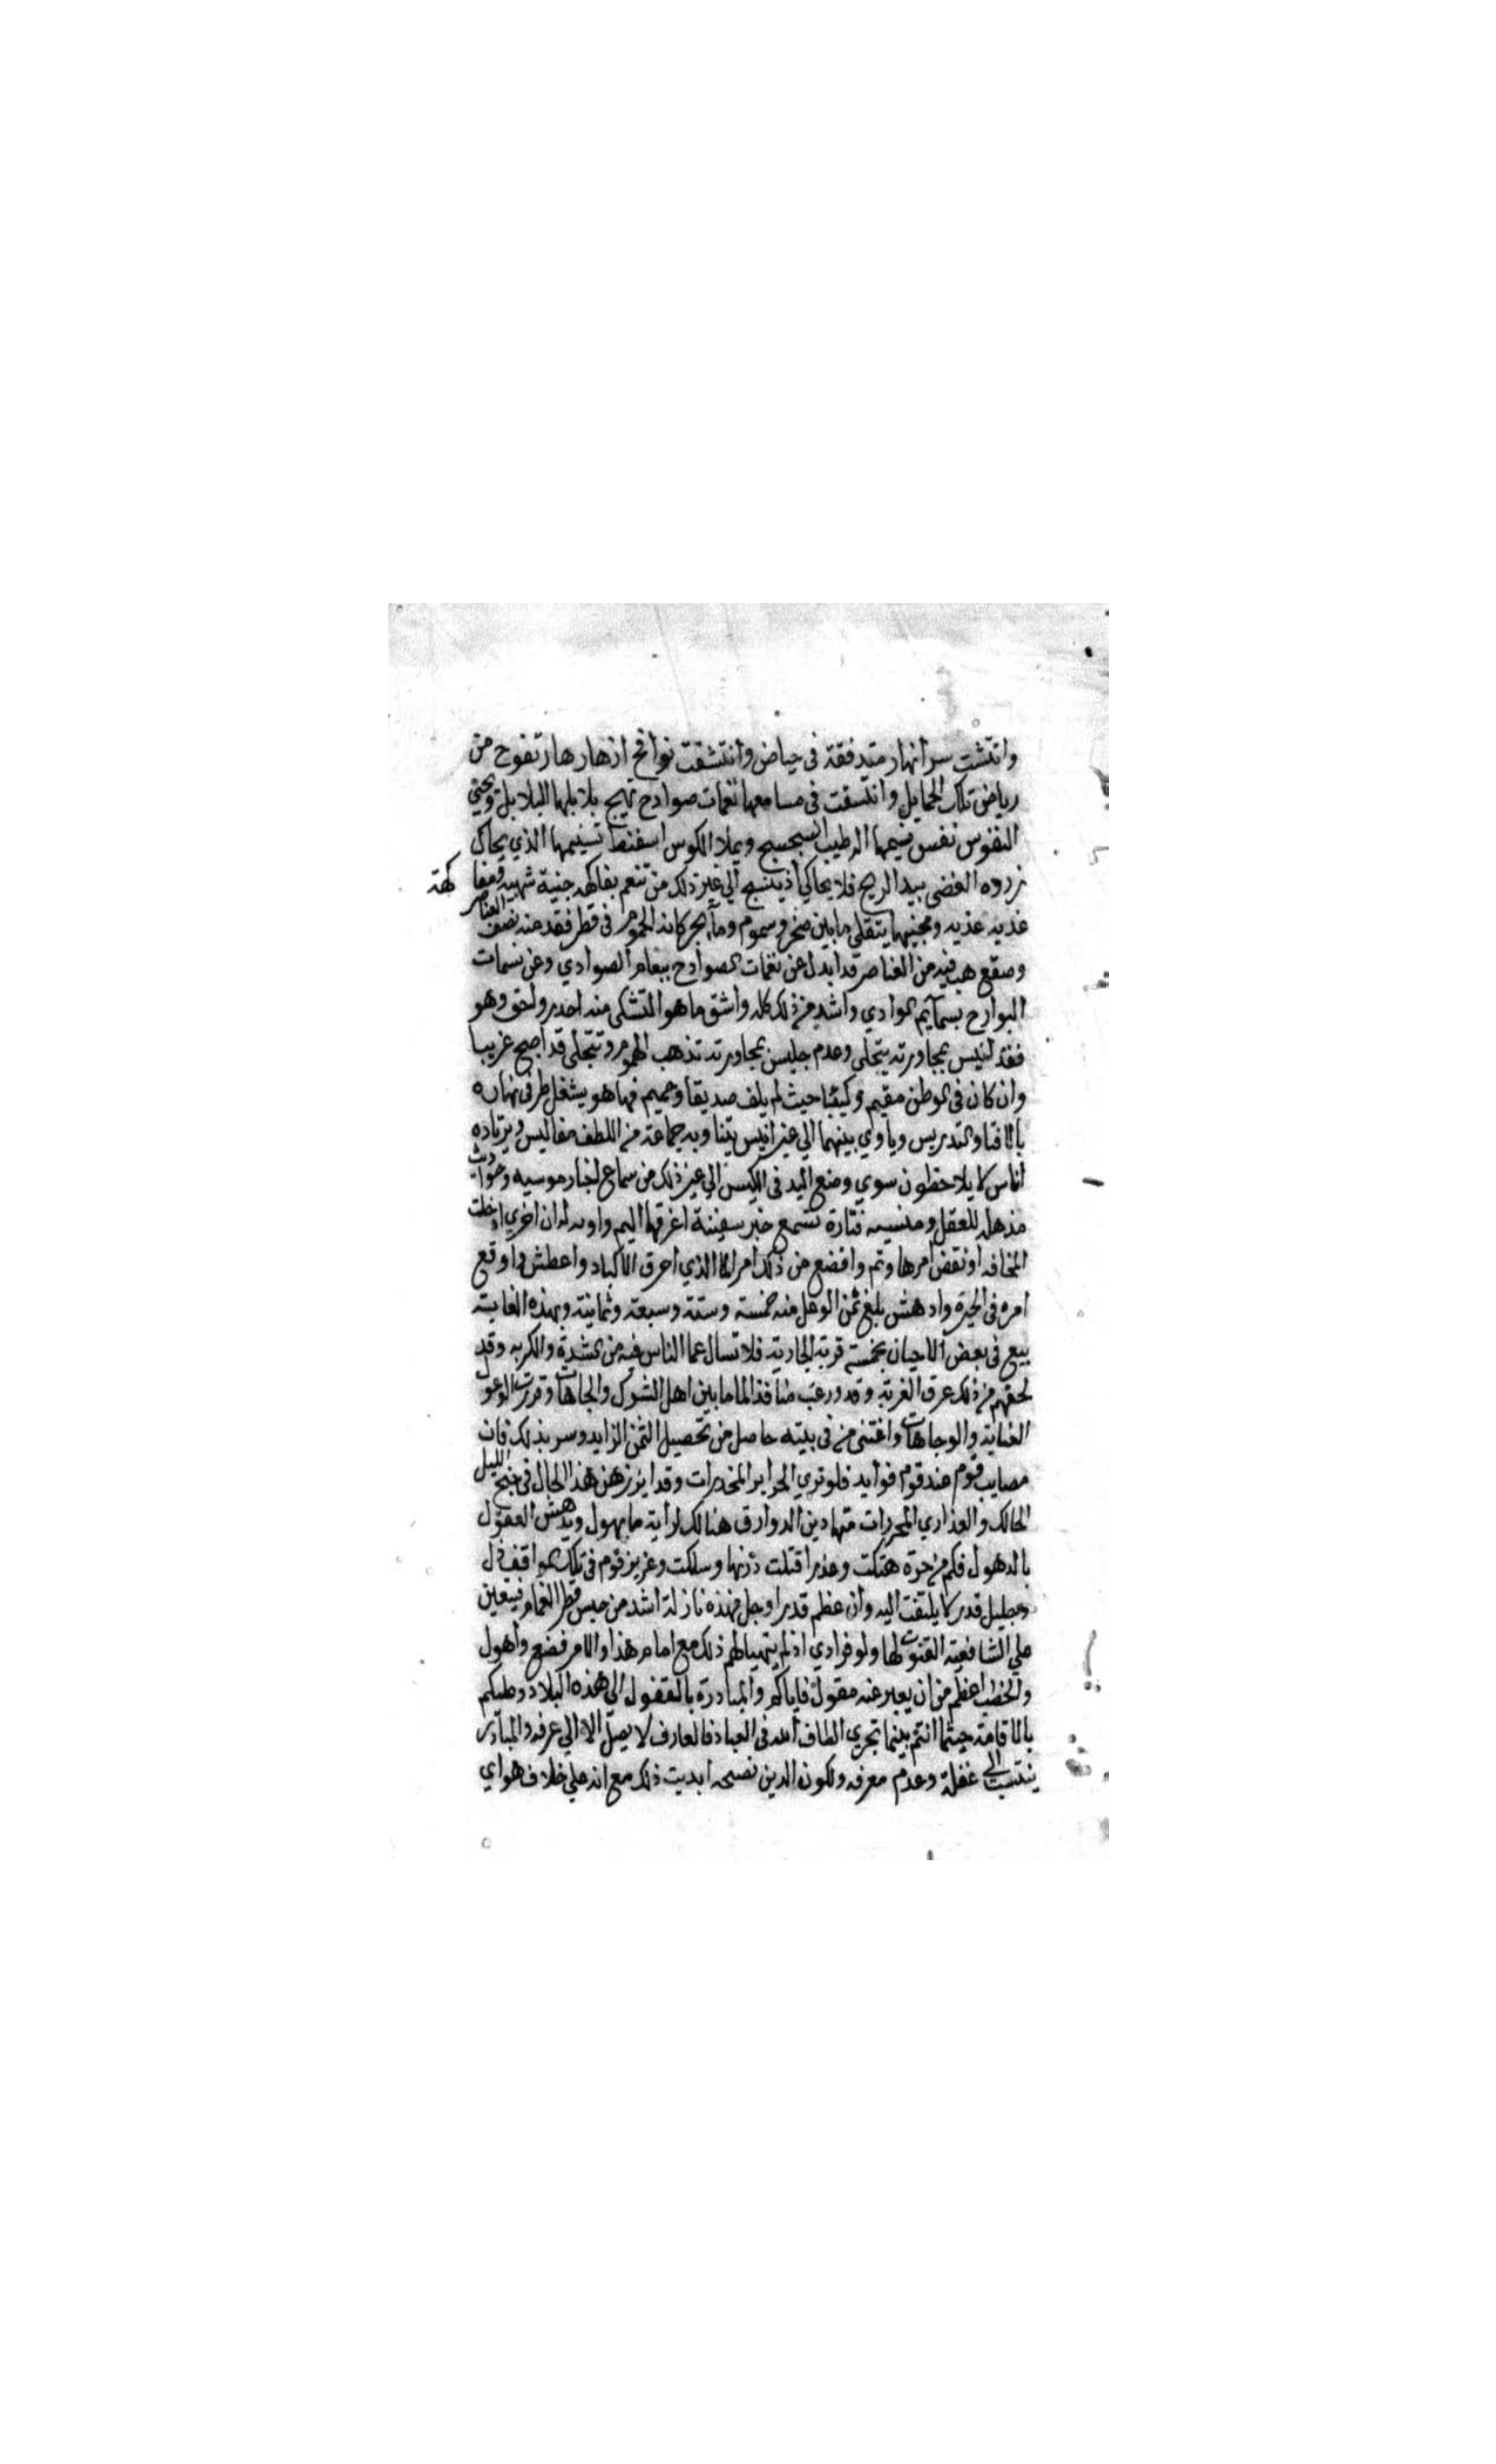 وانتشت سرأنهار متدفقة فى حياض وانتشقت نوافح ازهارها زتفوح من
رياض تلك الخمايل وانتسقت فى مسامعها نغمات صوادح تهيج بلابلها البلابل ويحيي
النفوس نفس نسيمها الرطيب السجسج ويملا الكوس اسفنط تسنيمها الذي يحاك
زرده الفضي بيد الريح فلا يحاكي أذ ينسج الي غير ذلك من تنعم بفاكهة جنية شهيه
كهة
غديه عذيه ومجنيها يتقلي مابين صخر وسموم وماء بحر كانه الحموم فى قطر فقد منه نصف العناصر
وصقع هب فيه من العناصر قد ابدل عن نغمات الصوادح ببغام الصوادي وعن نسمات
البوارح بسمايم البوادي واشد من ذلك كله واشق ما هو المتشكى منه احدر ولحق وهو
فقد انيس بمجاورته يتحلى وعدم جليس بمحاورته تذهب الهموم وتتجلى قد اصبح غريبا
وان كان فى الوطن مقيم وكيئبا حيث لم يلف صديقا وحميم فها هو يشغل طرفى نهاره
بالافتا والتدريس وياوي بينهما الي غير انيس يتناوبه جماعة من اللطف مفاليس ويرتاده
أناس لا يلاحظون سوي وضع اليد فى الكيس الي غير ذلك من سماع اخبار موسيه وحوادث
مذهله للعقل ومنسيه فتارة تسمع خبر سفينة اغرقها اليم واونه ان اخري ادخلت
المخافه او نقض امرها وتم وافضع من ذلك امر الما الذي احرق الاكباد واعطش واوقع
امره فى الحيرة وادهش بلغ ثمن الوهل منه خمسة وستة وسبعة وثمانية وبهذه الغاية
بيع فى بعض الاحيان بخمسة قربة الجارية فلا تسال عما الناس فيه من الشدة والكربه وقد
لحقهم من ذلك عرق الغربة وقد وزعت منافذ الما مابين اهل الشوك والجاهات وقررت
العناية والوجاهات واغتنى من فى بيته حاصل من تحصيل الثمن الزايد وسر بذلك فان
مصايب قوم عند قوم فوايد فلو تري الحراير المخدرات وقد ابرزهن هذا الحال فى جنح الليل
الحالك والعذاري المحررات متهادين الدوارق هنالك لراية مايهول ويدهش العقول
بالدهول فكم من حرة هتكت وعذرا قتلت وسلكت وعزيز قوم فى تلك المواقف ذل
وجليل قدر لا يلتفت اليه وان عظم قدرا وجل فهذه نازلة اشد من حبس قطر الغمام فيتعين
على الشافعية القنوت لها ولو فرادي اذ لم يتهيا لهم ذلك مع امام هذا والامر فضع واهول
والخطب اعظم من ان يعبر عنه مقول فاياكم والمبادرة بالقفول الى هذه البلاد وعليكم
بالاقامة حيثما انتم بينما تجري الطاف الله فى العباد فالعارف لا يصل الا الي عرفه والمبادر
ينتسب الى غفلة وعدم معرفه ولكون الدين نصيحه ابديت ذلك مع انه على خلاف هواي